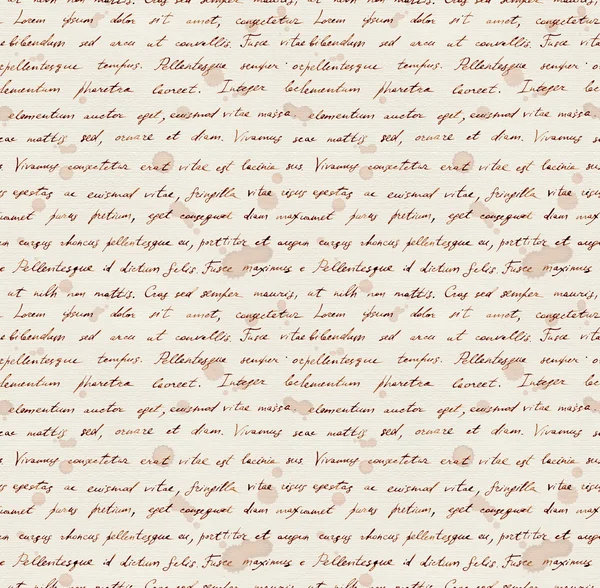 ut nibh non mattis. Cras sed semper mauris, ut nibh non mattis. Cras sed semper mauris,
Lorem ipsum dolor sit amet, consectetur Lorem ipsum dolor sit amet, consectetur
bibendum sed arcu ut convallis. Fusce vitae bibendum sed arcu ut convallis. Fusce vitae
pellentesque tempus. Pellentesque semper orpellentesque tempus. Pellentesque semper
elementum pharetra laoreet. Integer elementum pharetra laoreet. Integer
elementum auctor eget, euismod vitae massa. elementum auctor eget, euismod vitae massa.
eac mattis sed, ornare et diam. Vivamus seac mattis sed, ornare et diam. Vivamus s
s Vivamus consectetur erat vitae est lacinia sus Vivamus consectetur erat vitae est lacinia sus.
us egestas ac euismod vitae, fringilla vitae risus egestas ac euismod vitae, fringilla vitae risus
purus pretium, eget consequat diam purus pretium, eget consequat diam
cursus rhoncus pellentesque eu, porttitor et cursus rhoncus pellentesque eu, porttitor et
e Pellentesque id dictum felis. Fusce maximus e Pellentesque id dictum felis. Fusce maximus
ut nibh non mattis. Cras sed semper mauris, ut nibh non mattis. Cras sed semper mauris,
Lorem ipsum dolor sit amet, consectetur Lorem ipsum dolor sit amet, consectetur
bibendum sed arcu ut convallis. Fusce vitae bibendum sed arcu ut convallis. Fusce vitae
pellentesque tempus. Pellentesque semper orpellentesque tempus. Pellentesque semper
elementum pharetra laoreet. Integer elementum pharetra laoreet. Integer
elementum auctor eget, euismod vitae massa. elementum auctor eget, euismod vitae massa.
eac mattis sed, ornare et diam. Vivamus seac mattis sed, ornare et diam. Vivamus s
s Vivamus consectetur erat vitae est lacinia sus Vivamus consectetur erat vitae est lacinia sus.
us egestas ac euismod vitae, fringilla vitae risus egestas ac euismod vitae, fringilla vitae risus
purus pretium, eget consequat diam purus pretium, eget consequat diam
cursus rhoncus pellentesque eu, porttitor et cursus rhoncus pellentesque eu, porttitor et
e Pellentesque id dictum felis. Fusce maximus e Pellentesque id dictum felis. Fusce maximus
ut nibh non mattis. Cras sed semper mauris, ut nibh non mattis. Cras sed semper mauris,